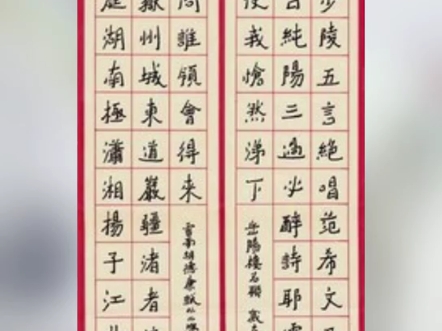 少陵五言絕唱范希文
純陽三過必醉詩耶
我愴然涕下
岳陽樓名聯
誰領會得來
嶽州城東道巖疆渚者
庭湖南極瀟湘揚子江